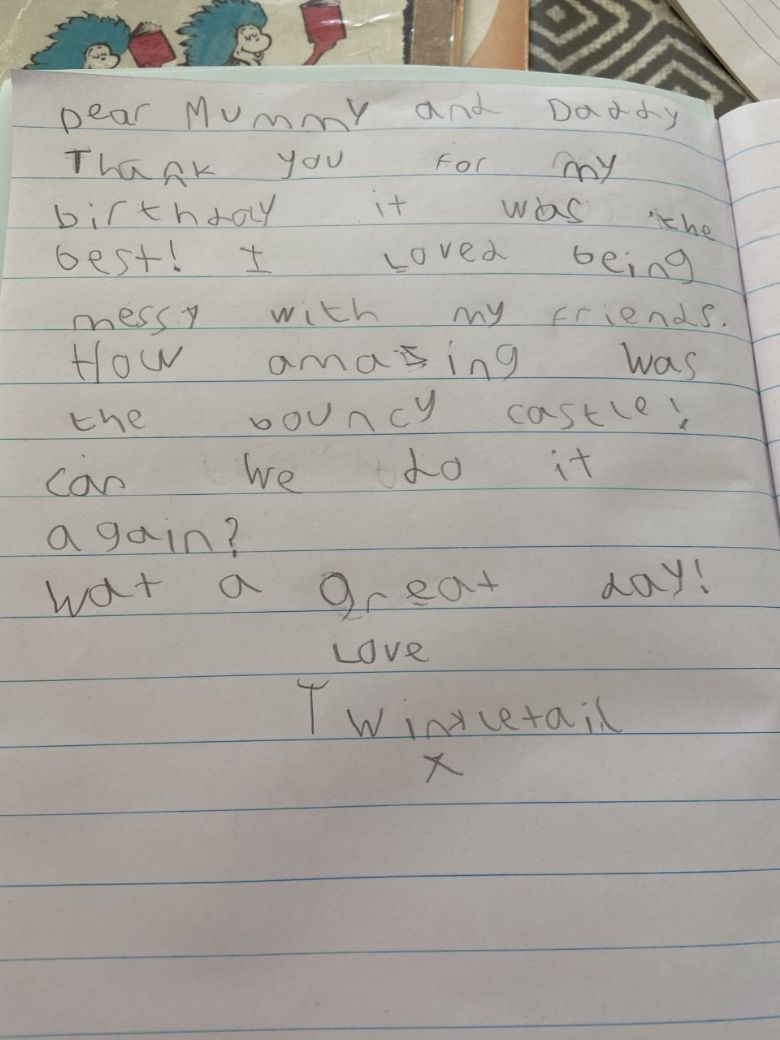 Dear Mummy and Daddy
Thank you for my
birthday it was the
best! I Loved being
messy with my friends.
How amazing was
the bouncy castle!
can we do it
again?
Wat a great day!
Love
Twinkletail
x